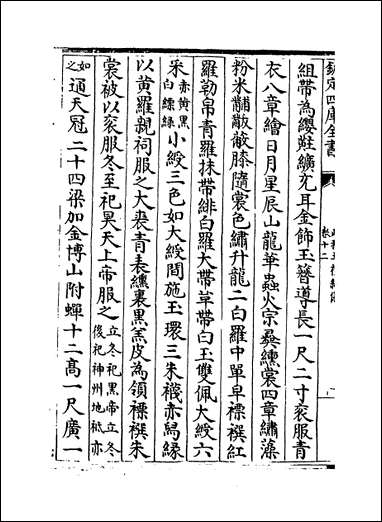 欽定四庫全書
卷十二
組帶為纓黈纊充耳金飾玉簪導長一尺二寸衮服青
衣八章繪日月星辰山龍華蟲火宗彞纁裳四章繡藻
粉米黼黻蔽膝隨裳色繡升龍二白羅中單皁褾襈紅
羅勒帛青羅抹帶緋白羅大帶革帶白玉雙佩大綬六
采赤黄黒白縹綠小綬三色如大綬間施玉環三朱襪赤舄緣
以黄羅親祠服之大裘青表纁裏黒羔皮為領褾襈朱
裳被以衮服冬至祀昊天上帝服之立冬祀黒帝立冬後祀神州地祇亦
如之通天冠二十四梁加金博山附蟬十二高一尺廣一